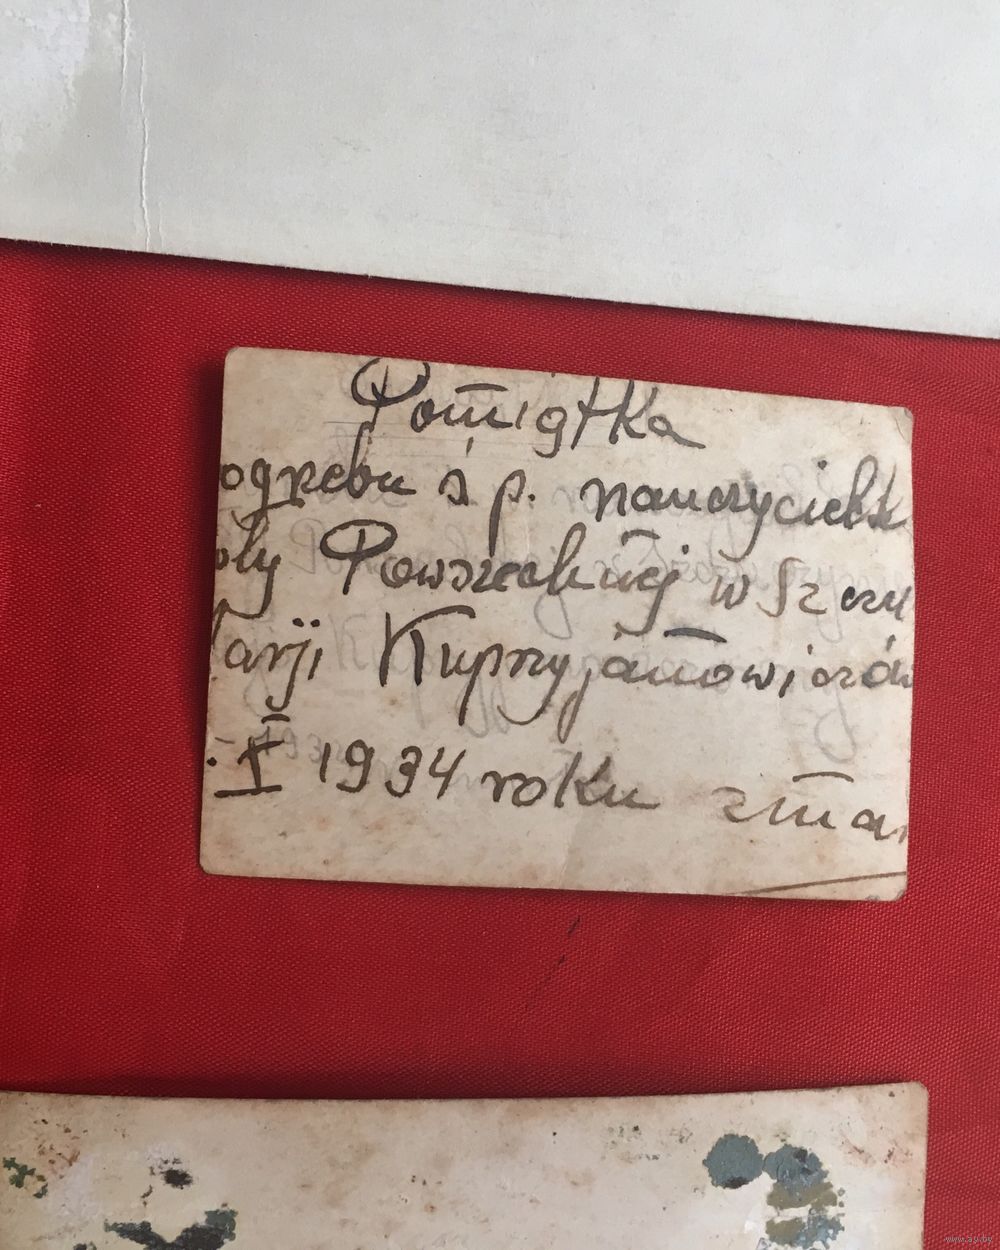 Pamiątka
ogrzebu ś p. nauczycielk
oły Powszechnej w Szczu
arji Kupryjanowiczów
. X 1934 roku zmar
www.ay.by